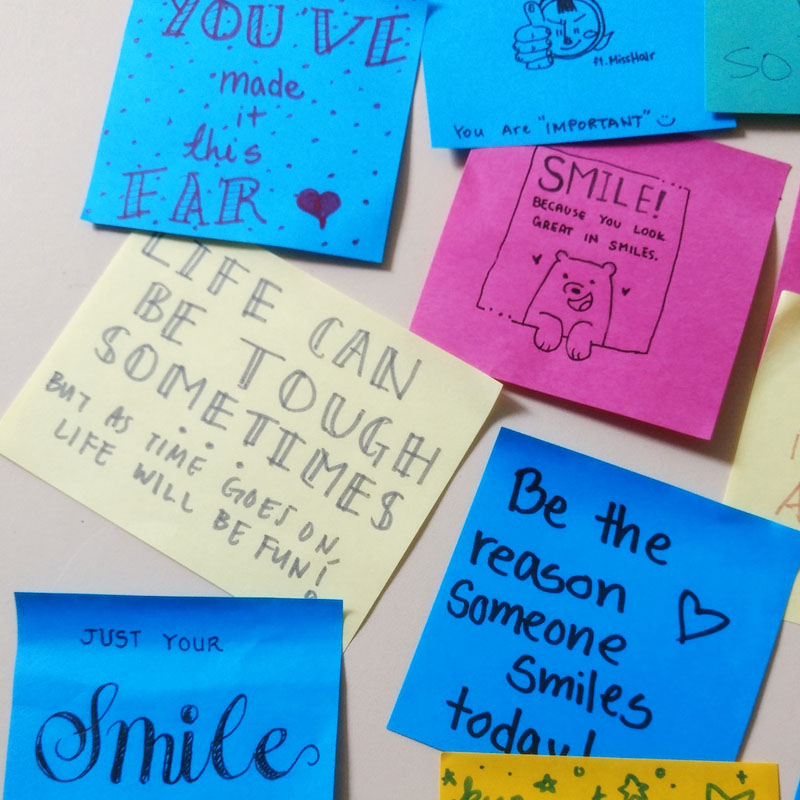 YOU'VE
made
it
this
FAR
ft. MissHair
You Are "IMPORTANT"
SO
SMILE!
BECAUSE YOU LOOK
GREAT IN SMILES.
LIFE CAN
BE TOUGH
SOMETIMES
BUT AS TIME GOES ON,
LIFE WILL BE FUN!
Be the
reason
someone
smiles
today!
JUST YOUR
Smile